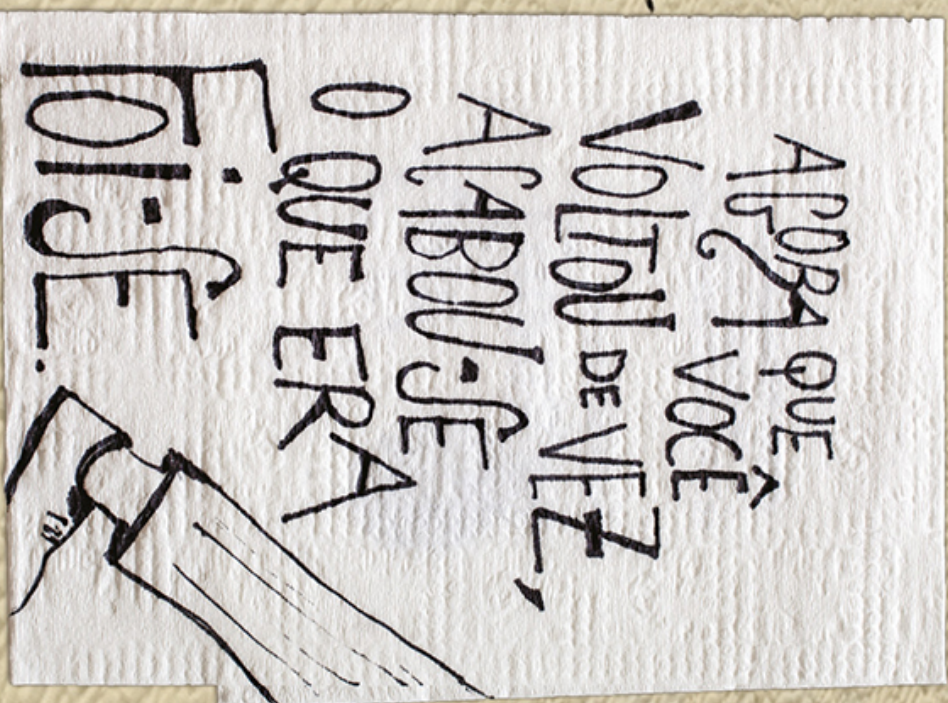 AGORA QUE
VOCÊ
VOLTOU DE VEZ,
ACABOU-SE
O QUE ERA
FOI-SE.